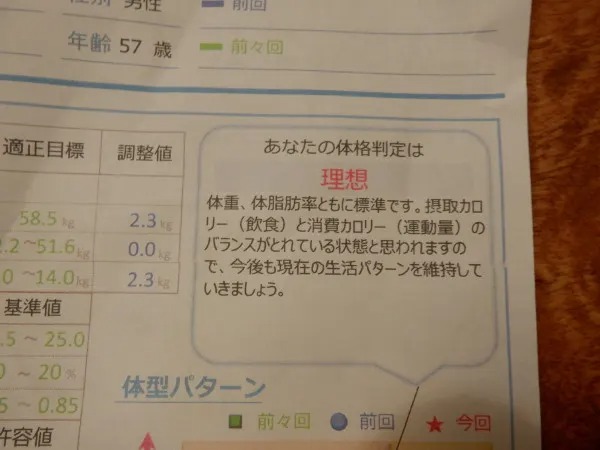 男性
前回
年齢 57 歳
前々回
適正目標
調整値
あなたの体格判定は
理想
体重、体脂肪率ともに標準です。摂取カロ
リー（飲食）と消費カロリー（運動量）の
バランスがとれている状態と思われますの
で、今後も現在の生活パターンを維持して
いきましょう。
58.5 kg
2.3 kg
2.2 ～51.6 kg
0.0 kg
0 ～14.0 kg
2.3 kg
基準値
.5 ～ 25.0
～ 20 %
5 ～ 0.85
許容値
体型パターン
前々回
前回
今回